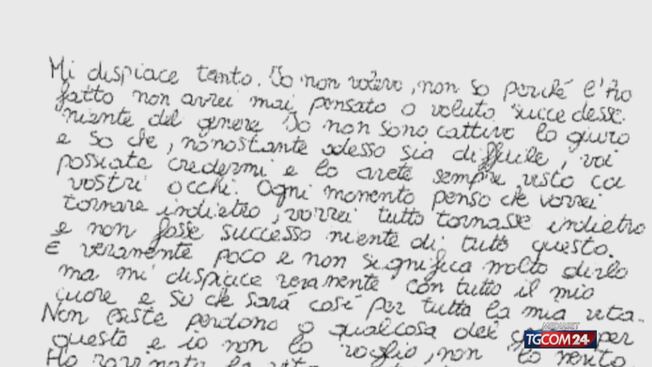 Mi dispiace tanto. Io non volevo, non so perché l'ho
fatto non avrei mai pensato o voluto succedesse
niente del genere Io non sono cattivo lo giuro
e so che, nonostante adesso sia difficile, voi
possiate credermi e lo avete sempre visto coi
vostri occhi. Ogni momento penso che vorrei
tornare indietro, vorrei tutto tornasse indietro
e non fosse successo niente di tutto questo.
È veramente poco e non significa molto dirlo
ma mi dispiace veramente con tutto il mio
cuore e so che sarà così per tutta la mia vita.
Non esiste perdono o qualcosa del per
questo e io non lo voglio, non lo merito.
Ho rovinato la vita
MEDIASET
TGCOM24